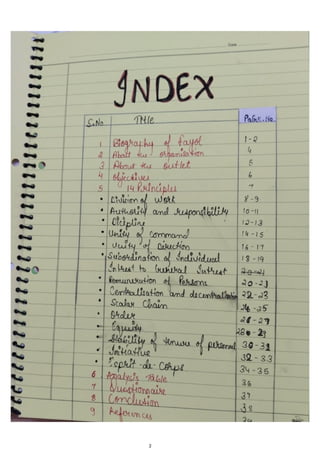 Date
INDEX
S.No. Title Page. No.
1 Biography of Fayol 1-2
2 About the organisation 4
3 About the outlet 5
4 Objectives 6
5 14 Principles 7
• Division of Work 8-9
• Authority and responsibility 10-11
• Dicipline 12-13
• Unity of Command 14-15
• Unity of Direction 16-17
• Subordination of Individual 18-19
Intrest to General Intrest
• Remuneration of Persons 20-21
• Centralisation and decentralisation 22-23
• Scalar Chain 24-25
• Order
• Equity
• Stability of tenure of personnel 30-31
• Initiative 32-33
• Esprit-de-Corps 34-35
6 Analysis Table 36
7 Questionnaire 37
8 Conclusion 38
9 References
2